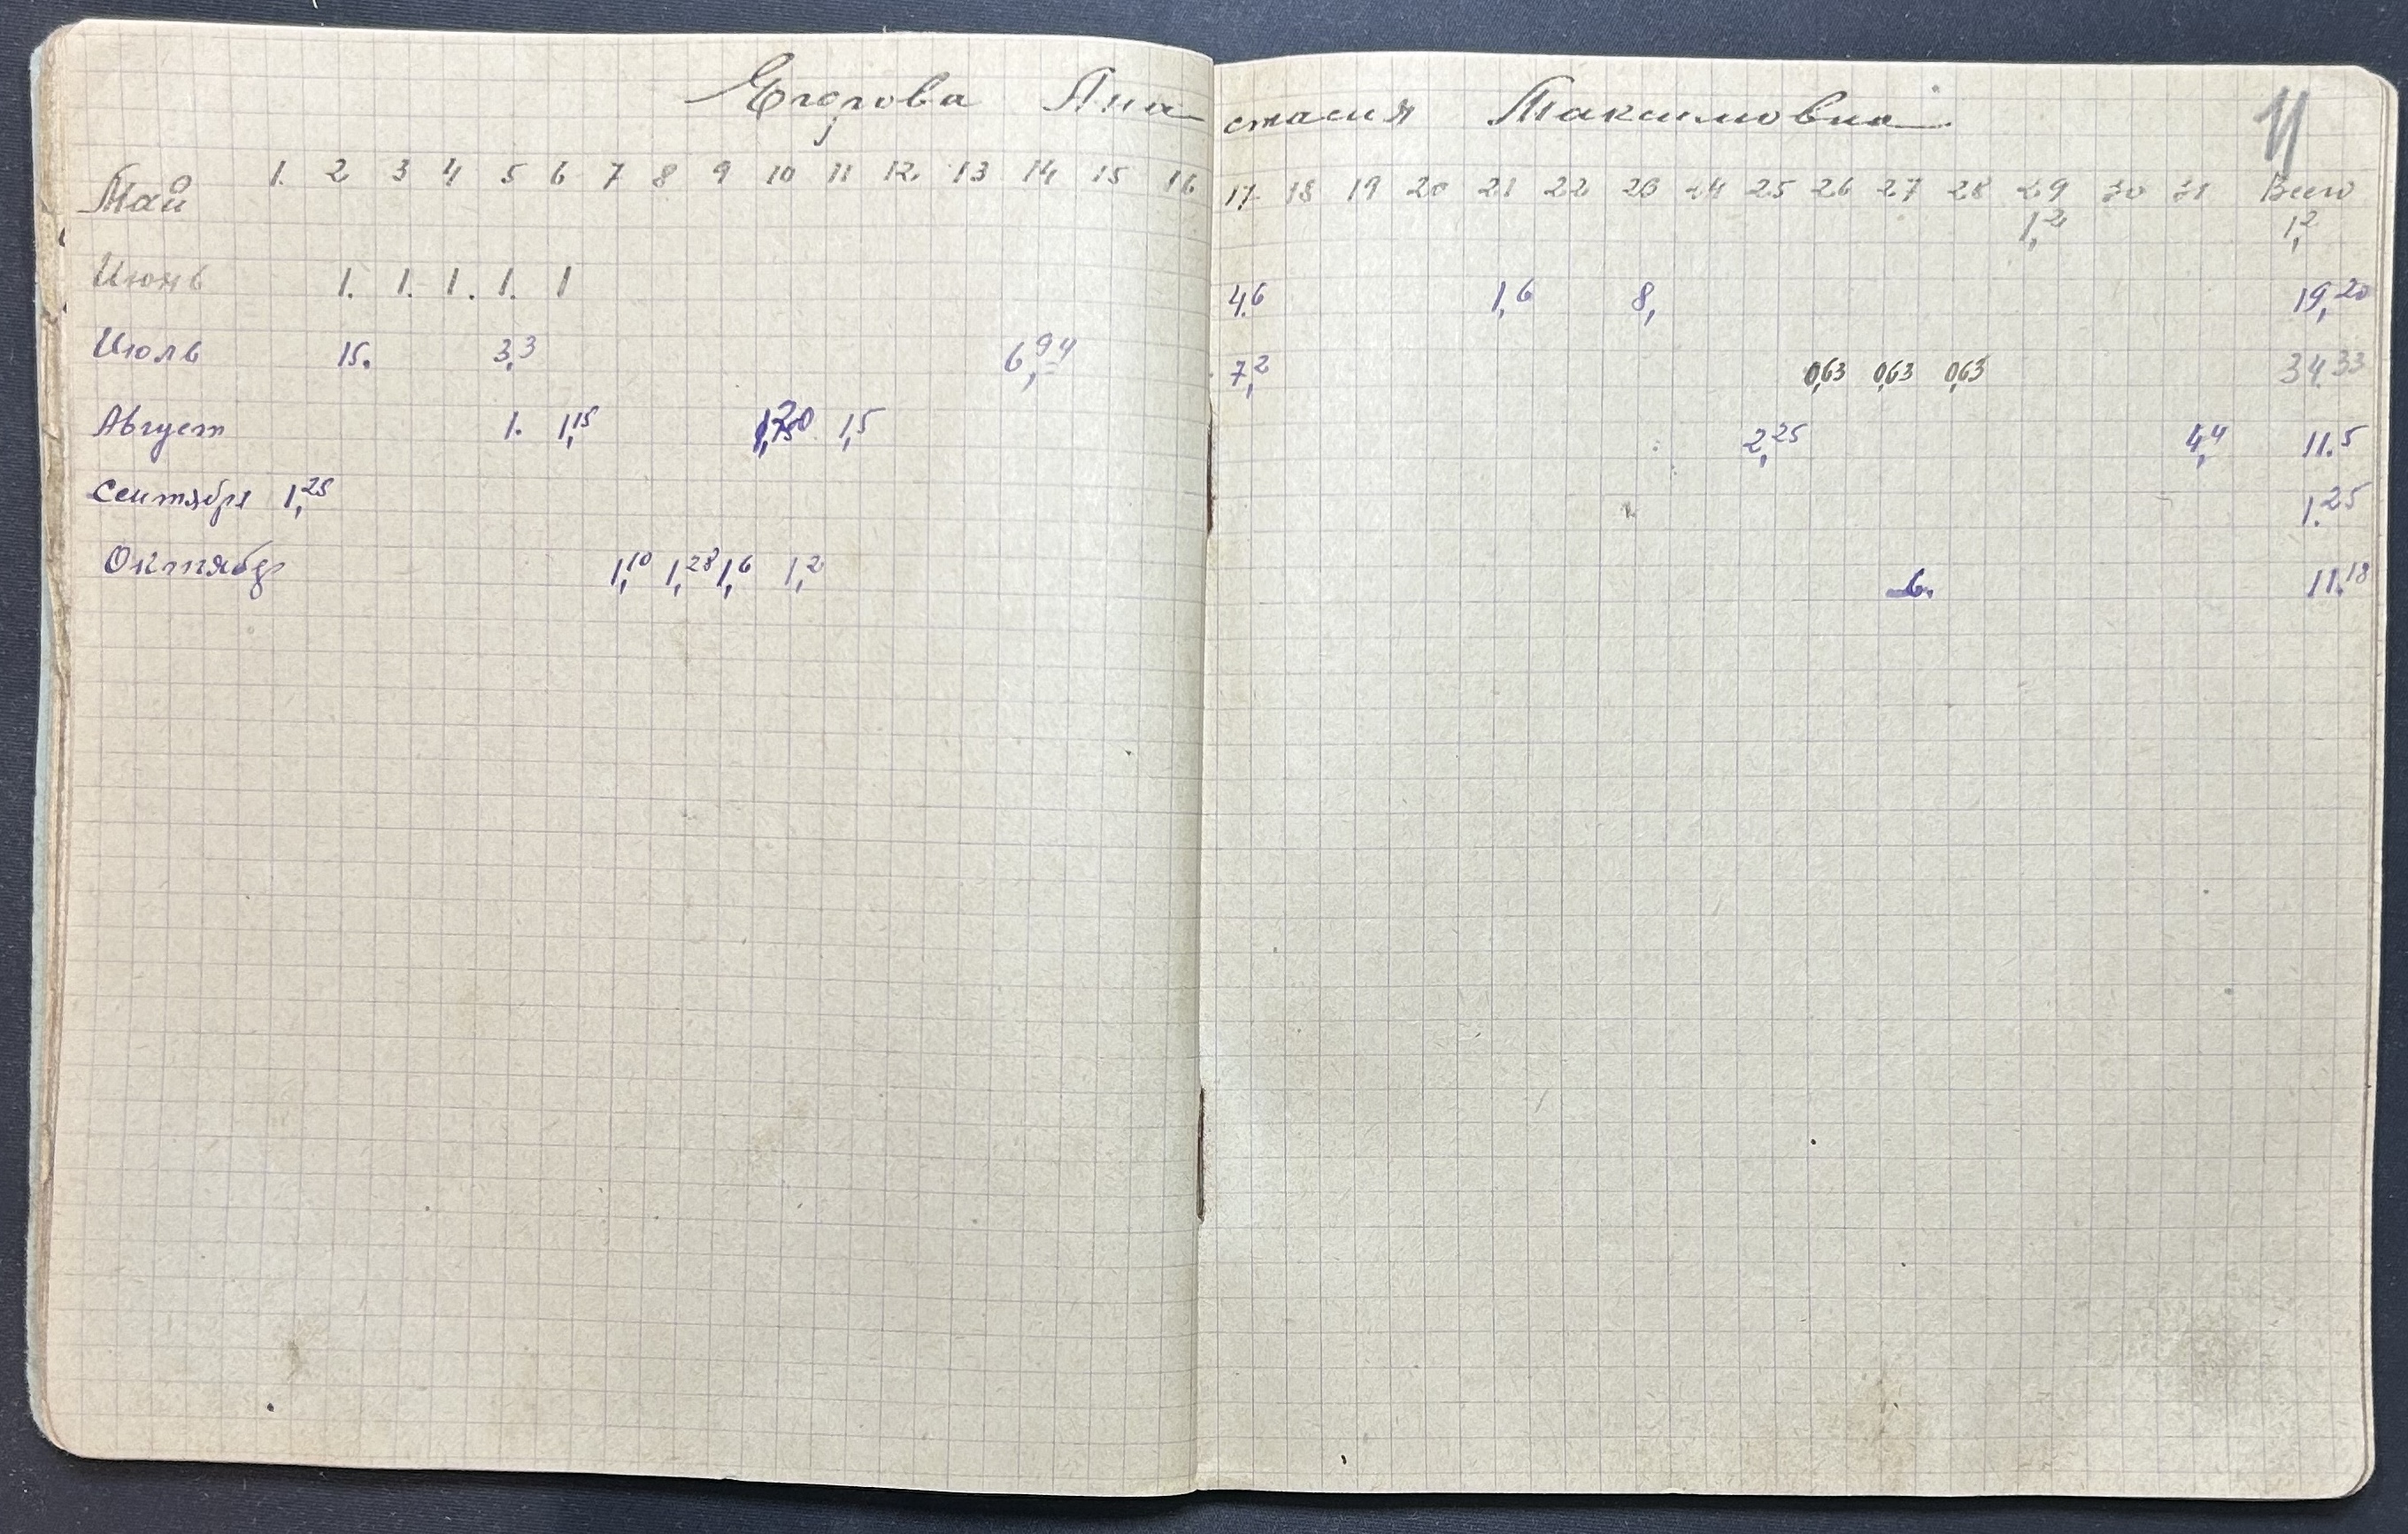 Егорова Анастасия Максимовна 11
Май 1. 2 3 4 5 6 7 8 9 10 11 12 13 14 15 16 17 18 19 20 21 22 23 24 25 26 27 28 29 30 31 Всего
1,2 1,2
Июнь 1. 1. 1. 1. 1 4.6 1,6 8, 19,20
Июль 15. 3,3 6,94 7,2 0,63 0,63 0,63 34.33
Август 1. 1,15 1,5 2,25 4,4 11.5
Сентября 1,25 1.25
Октябр 1,10 1,28 1,6 1,2 6. 11.18